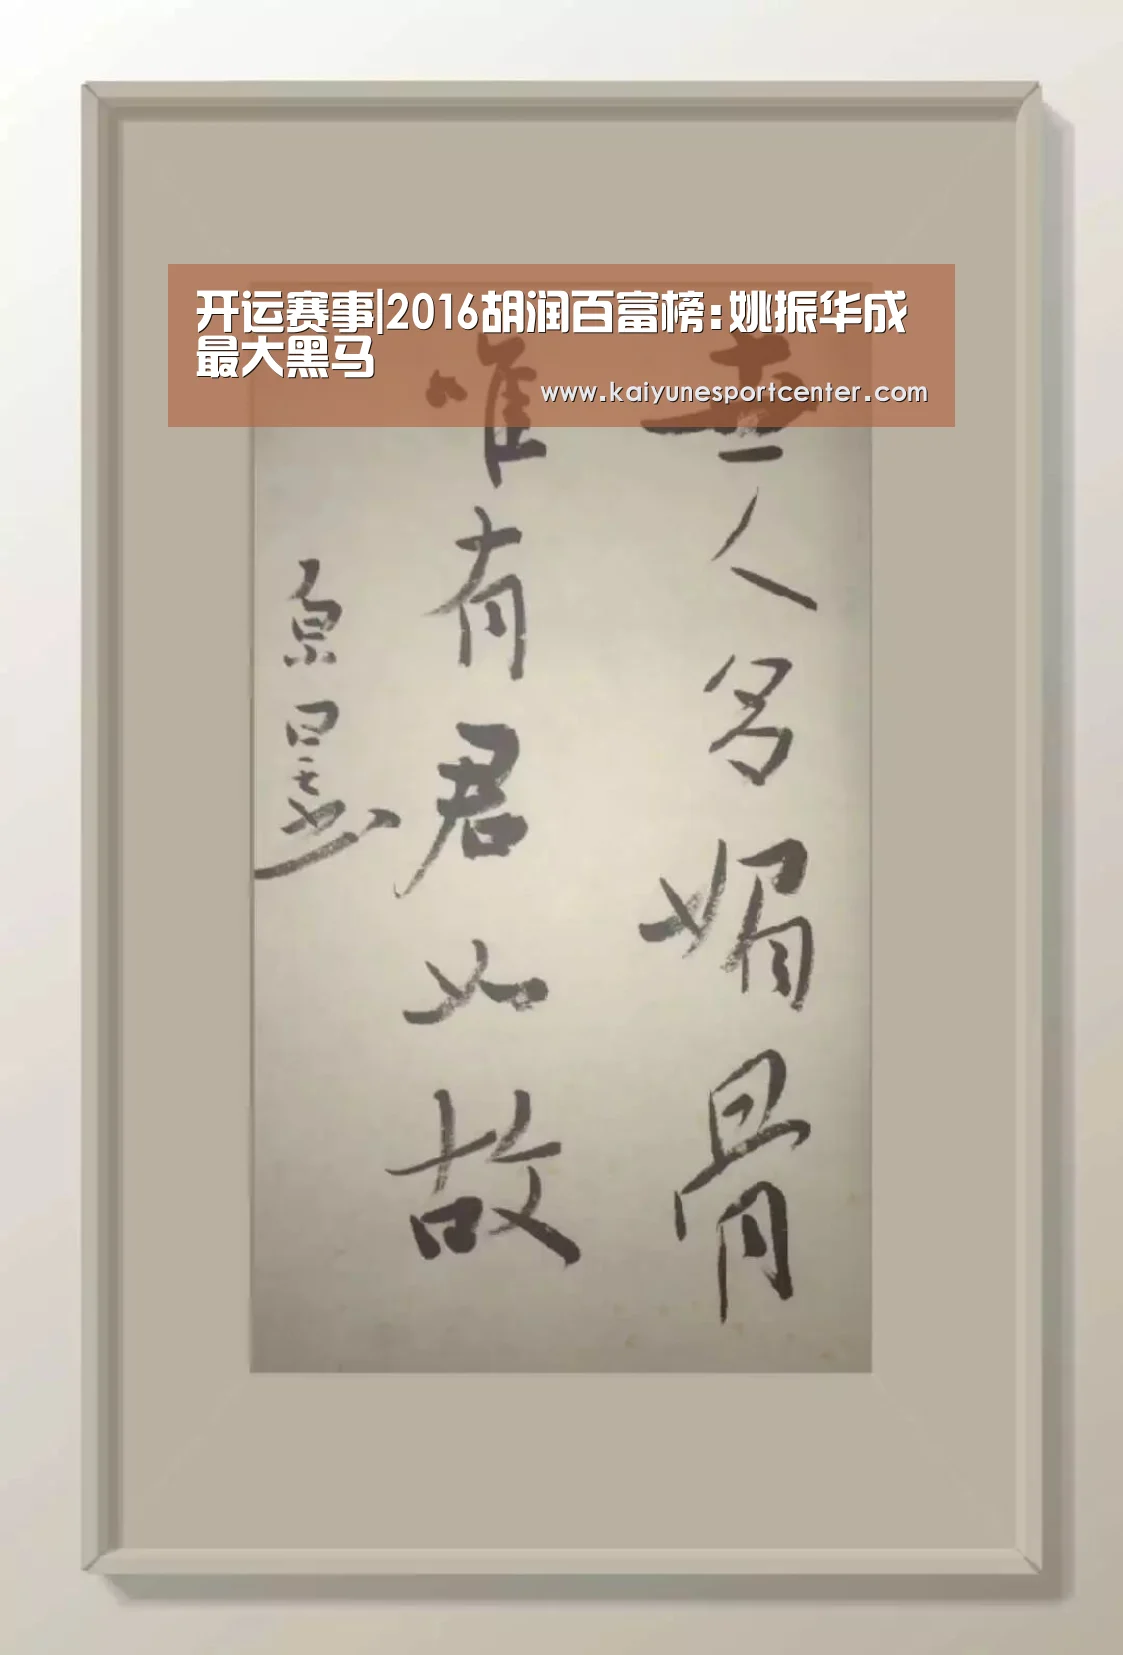 开运赛事|2016胡润百富榜:姚振华成
最大黑马
www.kaiyunesportcenter.com
無人名媚骨
唯有君如故